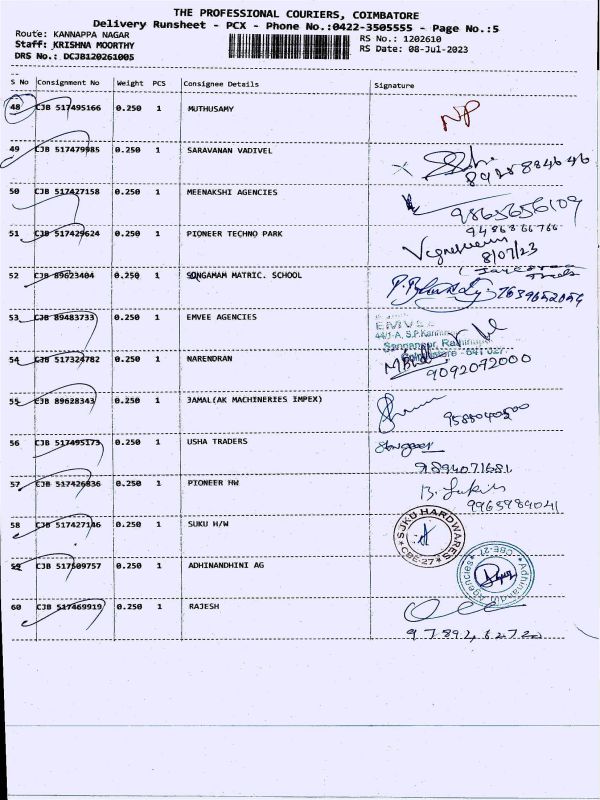 THE PROFESSIONAL COURIERS, COIMBATORE
Delivery Runsheet - PCX - Phone No.:0422-3505555 - Page No.:5
Route: KANNAPPA NAGAR
RS No.: 1202610
Staff: KRISHNA MOORTHY
RS Date: 08-Jul-2023
DRS No.: DCJB120261005
S No Consignment No Weight PCS Consignee Details Signature
48 CJB 517495166 0.250 1 MUTHUSAMY NP
49 CJB 517479985 0.250 1 SARAVANAN VADIVEL
50 CJB 517427158 0.250 1 MEENAKSHI AGENCIES
9865656109
51 CJB 517429624 0.250 1 PIONEER TECHNO PARK
9486866766
8/07/23
52 CJB 89623404 0.250 1 SONGAMAM MATRIC. SCHOOL
7639652054
53 CJB 89483733 0.250 1 EMVEE AGENCIES
54 CJB 517324782 0.250 1 NARENDRAN
9092072000
55 CJB 89628343 0.250 1 JAMAL(AK MACHINERIES IMPEX)
9588040500
56 CJB 517495173 0.250 1 USHA TRADERS
9894071681
57 CJB 517426836 0.250 1 PIONEER HW
9965989041
58 CJB 517427146 0.250 1 SUKU H/W
SUKU HARDWARES
CBE-27
59 CJB 517509757 0.250 1 ADHINANDHINI AG
Adhinandhini Agencies
CBE-27
60 CJB 517469919 0.250 1 RAJESH